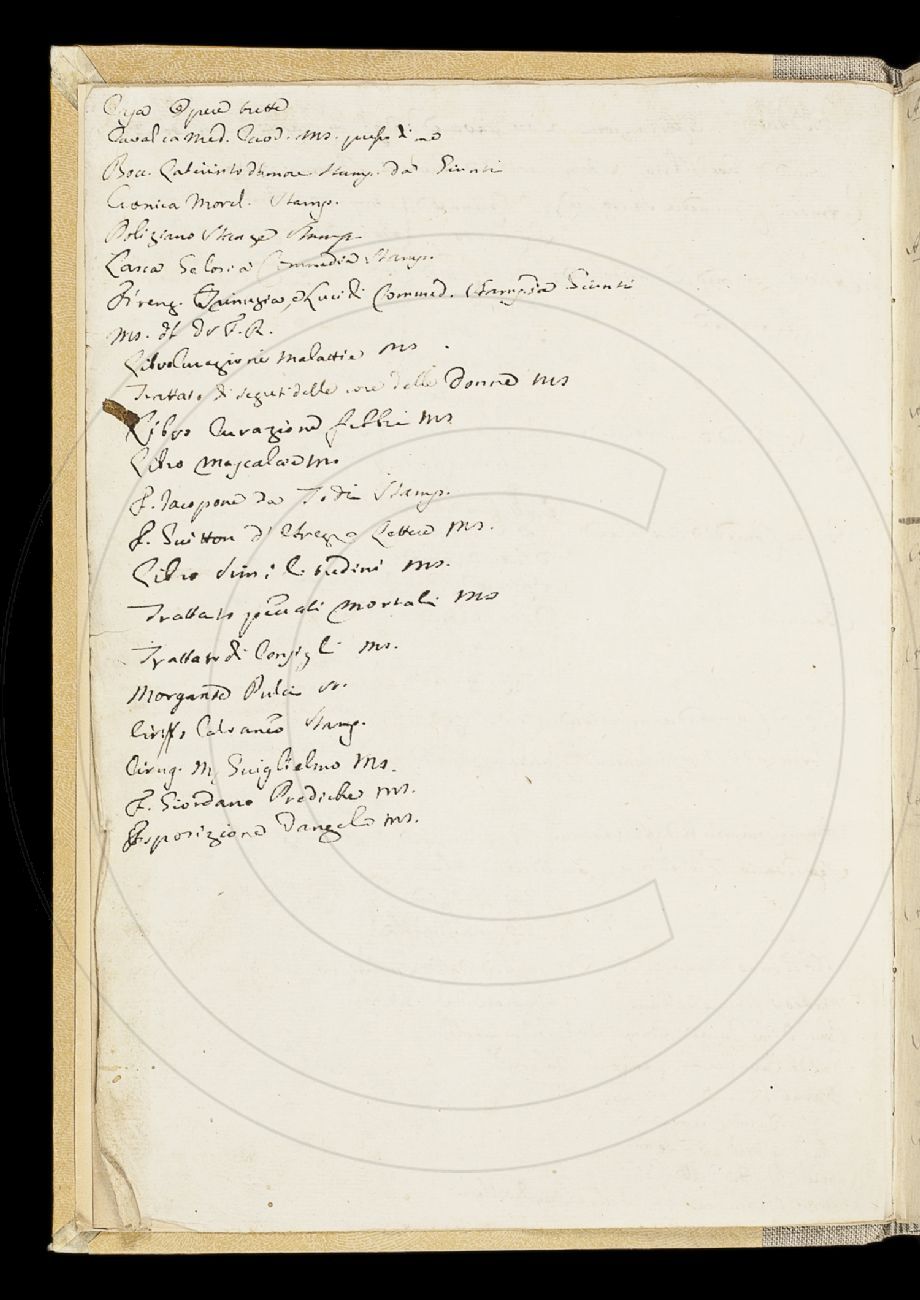 Casa Opere tutte
Cavalca Med. Cuod. Ms. presso di me
Bocc. Laberinto d'Amore stamp. da Giunti
Cronica Morel. Stamp.
Poliziano Stanze Stamp.
Lasca Gelosia Commedia Stamp.
Firenz. Trinuzia, e Lucidi Commed. Stamp. da Giunti
Ms. di F. R.
Libro Curazione Malattie Ms
Trattato di segreti delle cose delle Donne Ms
Libro Curazione febbri Ms
Libro Mascalcie Ms
F. Jacopone da Todi Stamp.
F. Guittone d'Arezzo Lettere Ms.
Libro Similitudini Ms.
Trattato peccati mortali Ms
Trattato di Consigli Ms.
Morgante Pulci St.
Ciriffo Calvaneo Stamp.
Cirug. M. Guiglielmo Ms.
F. Giordano Prediche Ms.
Esposizione Vangelo Ms.